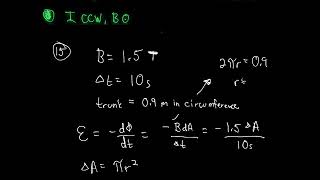 I CCW, BO
15
B = 1.5 T
2πr = 0.9
Δt = 10s
trunk = 0.9 m in circumference
ℰ = -dΦ/dt = -BdA/Δt = -1.5 ΔA/10s
ΔA = πr²